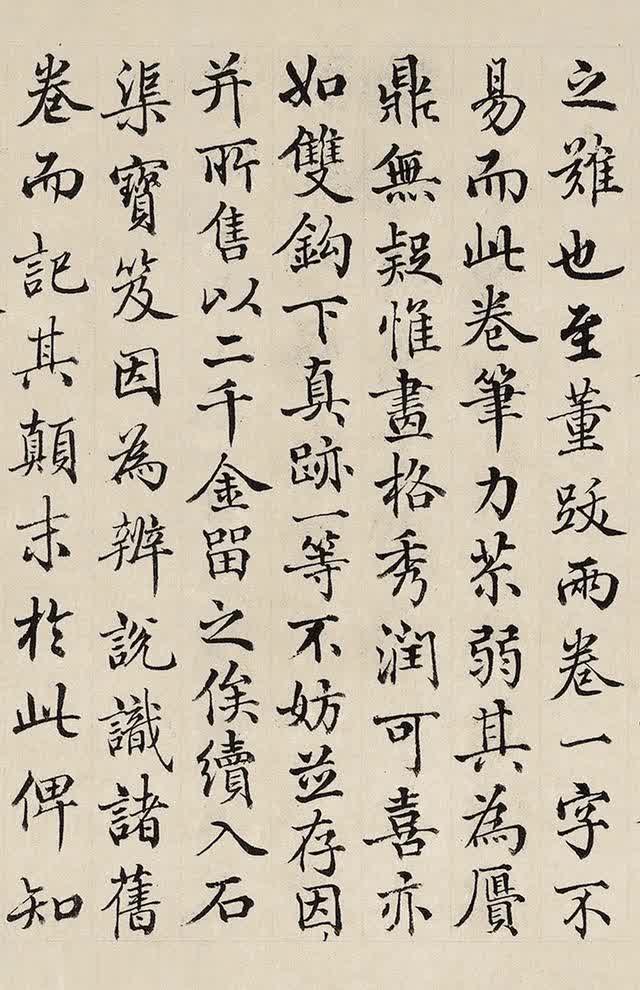 之難也至董跋兩卷一字不
易而此卷筆力苶弱其為贗
鼎無疑惟畫格秀潤可喜亦
如雙鈎下真跡一等不妨並存因
并所售以二千金留之俟續入石
渠寶笈因為辨說識諸舊
卷而記其顛末於此俾知